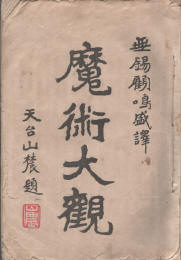 無錫顧鳴盛譯
魔術大觀
天台山農題